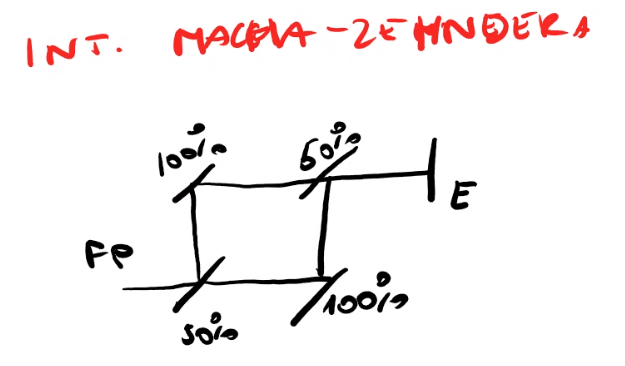 INT. MACHA-ZEHNDERA
100% 50%
E
FP
50% 100%